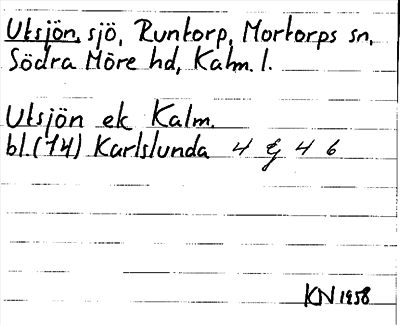 Utsjön, sjö, Runtorp, Mortorps sn,
Södra Möre hd, Kalm. l.
Utsjön ek Kalm.
bl. (74) Karlslunda 4 g 4 6
KN 1958